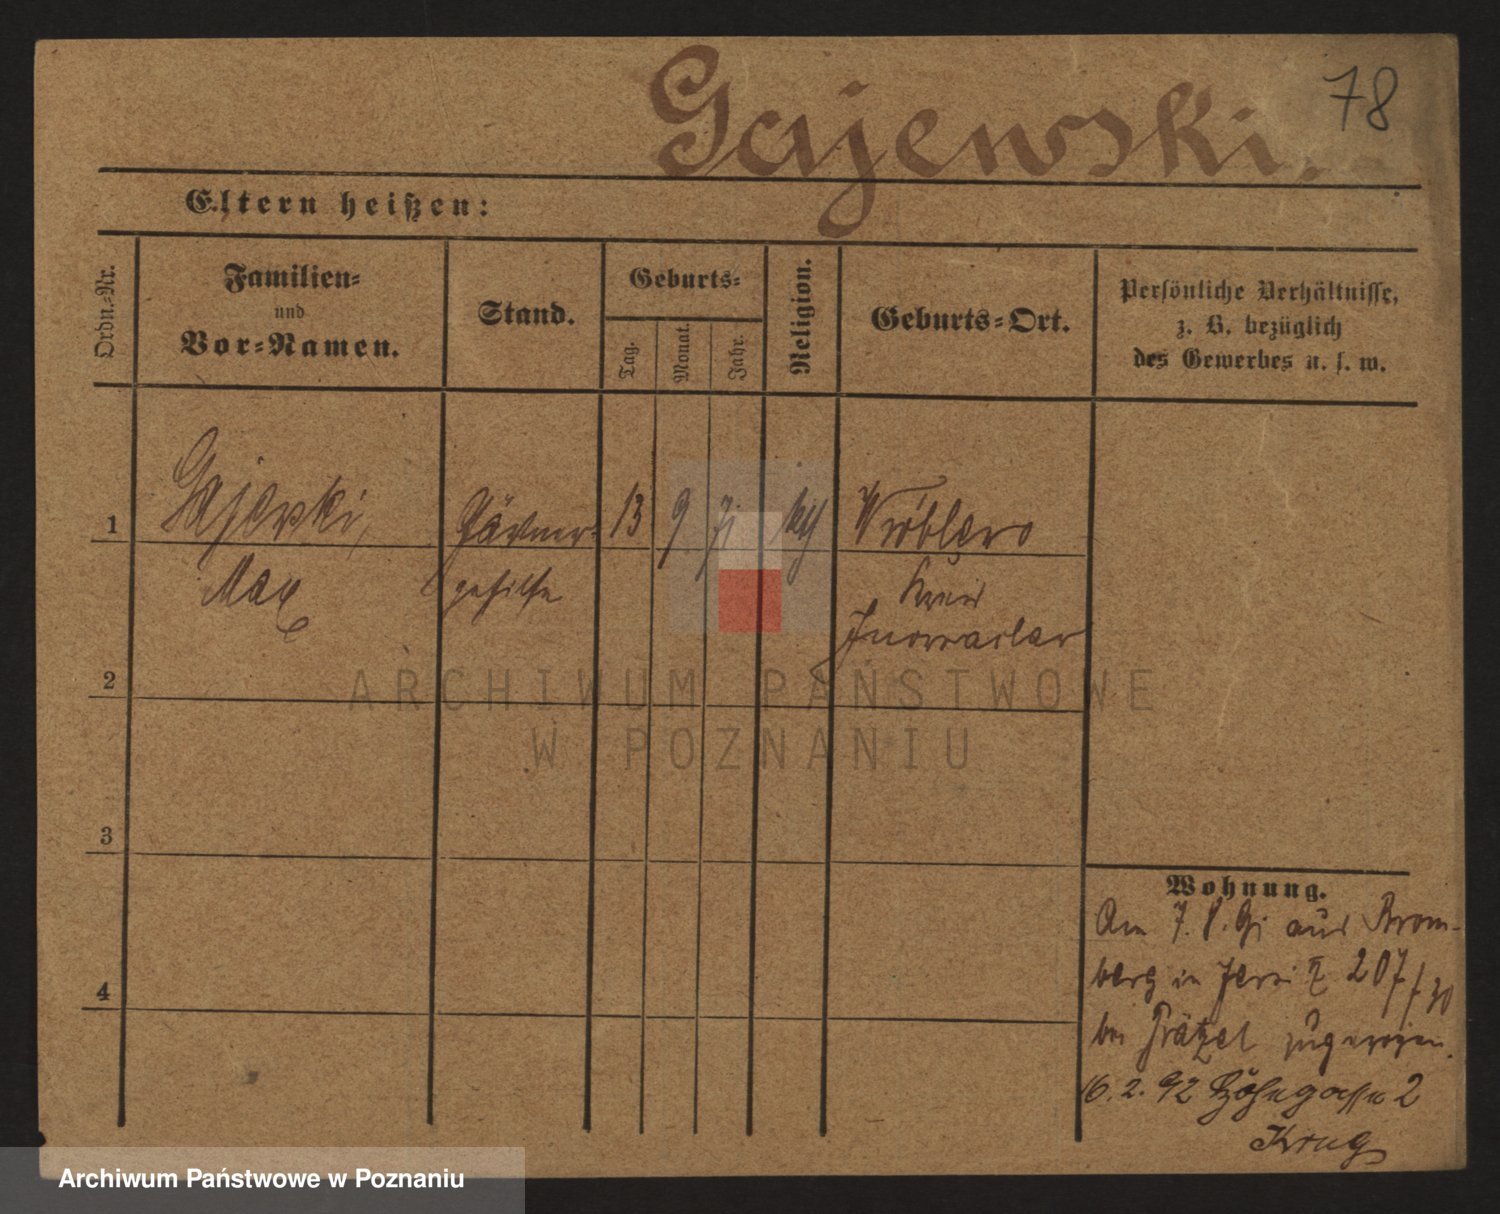 Gajewski.
78
Eltern heißen:
Ordn.-Nr.
Familien-
und
Vor-Namen.
Stand.
Geburts-
Tag.
Monat.
Jahr.
Religion.
Geburts-Ort.
Persönliche Verhältnisse,
z. B. bezüglich
des Gewerbes u. s. w.
1
Gajewski,
Max
Gärtner-
gehilfe
13
9
71
Wróblewo
Kreis
Inowraclaw
2
3
4
Wohnung.
Am 7. 8. 91 aus Brom-
berg in Jersitz 207/30
bei zugezogen.
16. 2. 92 2
Krug
ARCHIWUM PAŃSTWOWE
W POZNANIU
Archiwum Państwowe w Poznaniu